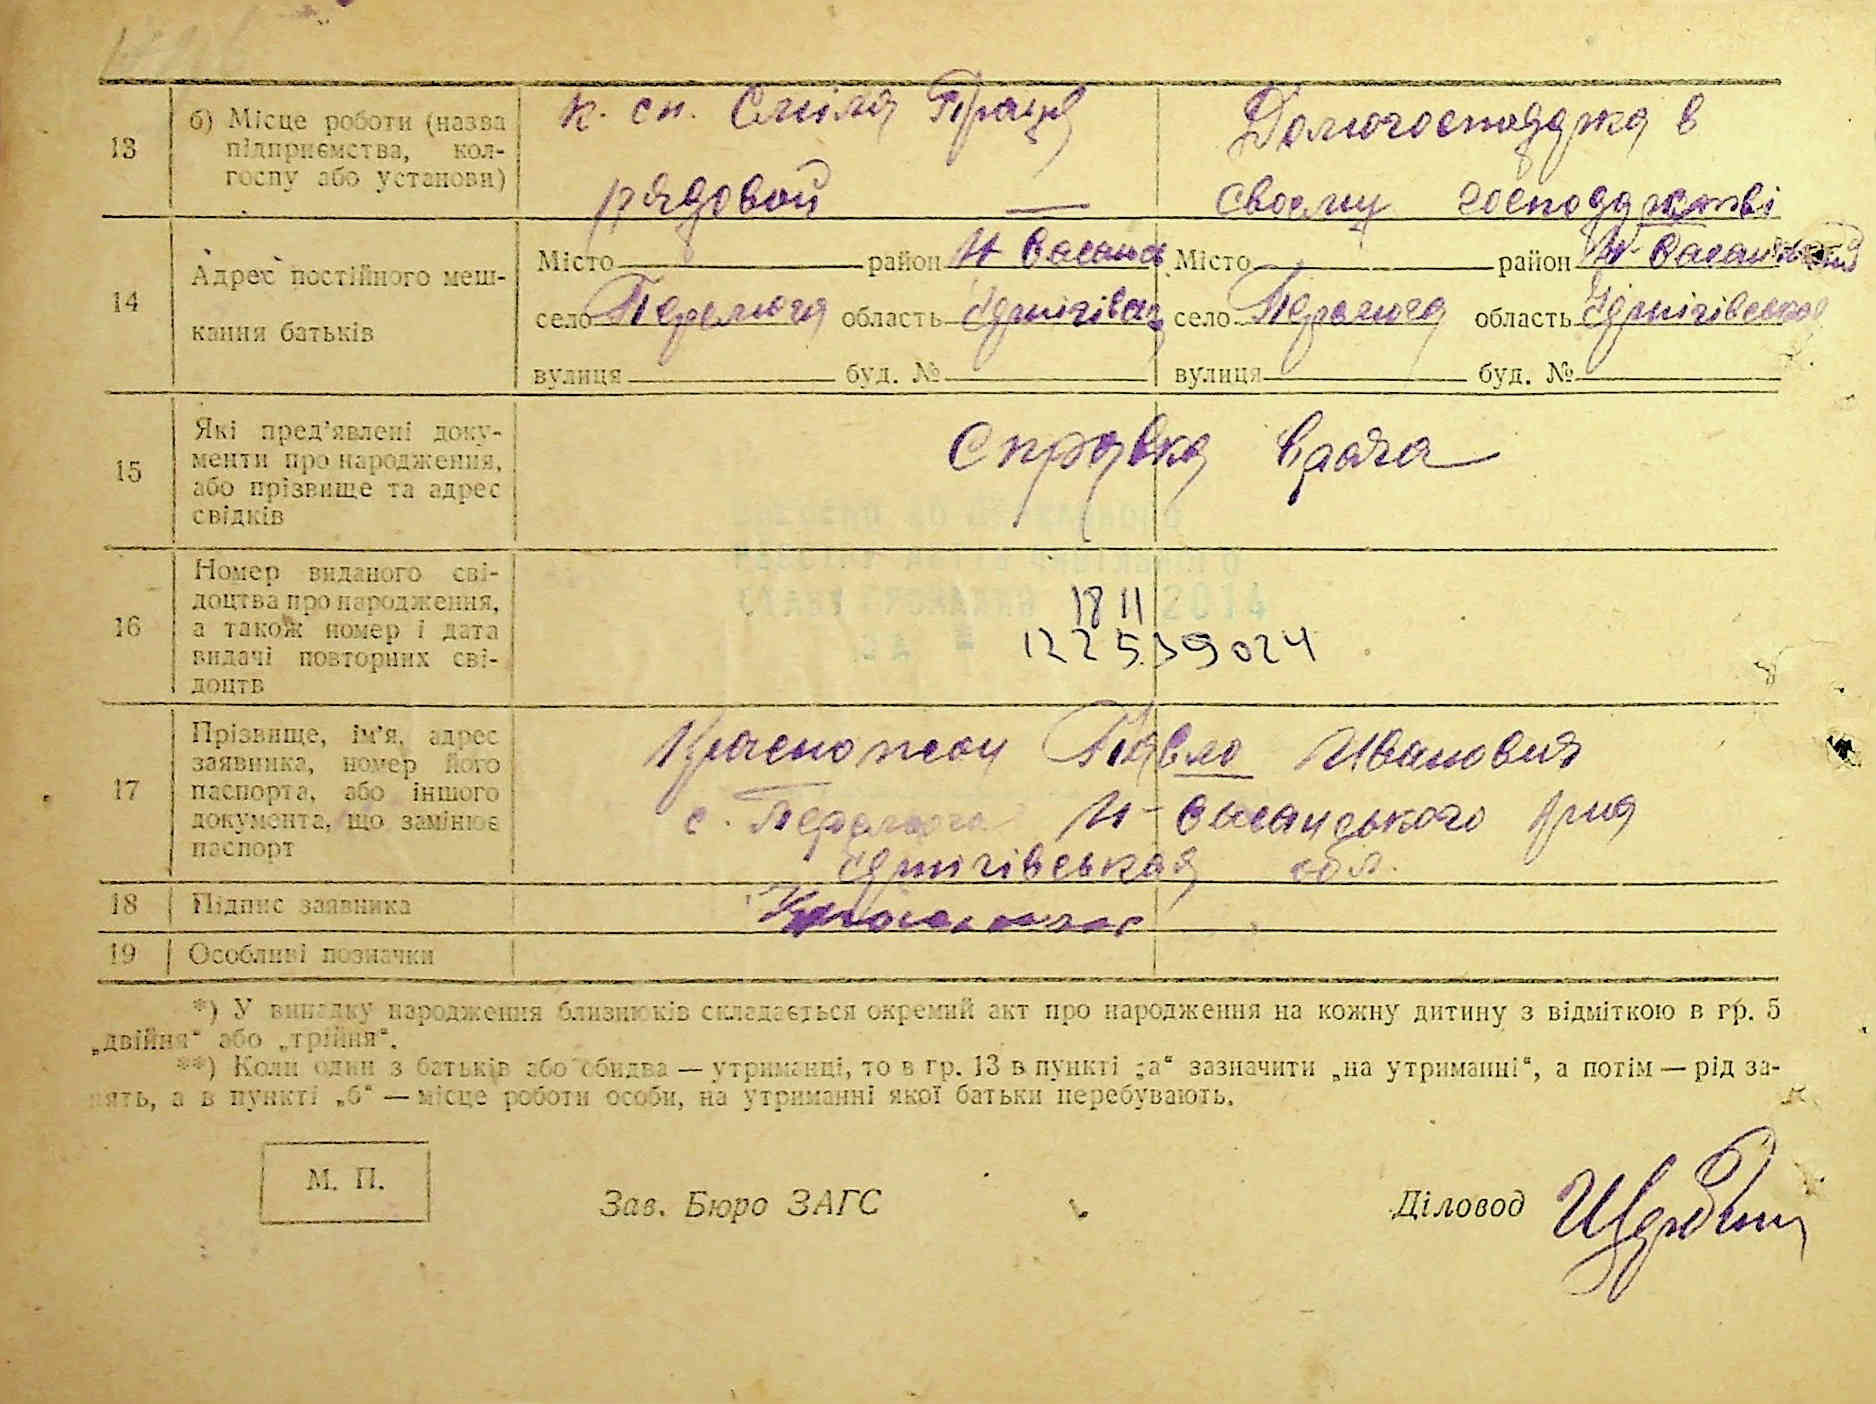 13
б) Місце роботи (назва
підприємства, кол-
госпу або установи)
к. сп. Сміла Праця
рядовой —
Домогосподарка в
своєму господарстві
14
Адрес постійного меш-
кання батьків
Місто район Н Басанск
село Перемога область Чернігівська
вулиця буд. №
Місто район Н Басанський
село Перемога область Чернігівської
вулиця буд. №
15
Які пред’явлені доку-
менти про народження,
або прізвище та адрес
свідків
Справка врача
16
Номер виданого сві-
доцтва про народження,
а також номер і дата
видачі повторних сві-
доцтв
18 11 2014
12259024
17
Прізвище, ім’я, адрес
заявника, номер його
паспорта, або іншого
документа, що замінює
паспорт
Красножон Павло Иванович
с. Перемога Н-Басанського р-на
Чернігівськая обл.
18
Підпис заявника
19
Особливі позначки
*) У випадку народження близнюків складається окремий акт про народження на кожну дитину з відміткою в гр. 5
„двійня“ або „трійня“.
**) Коли один з батьків або обидва — утриманці, то в гр. 13 в пункті „а“ зазначити „на утриманні“, а потім — рід за-
нять, а в пункті „б“ — місце роботи особи, на утриманні якої батьки перебувають.
М. П.
Зав. Бюро ЗАГС
Діловод